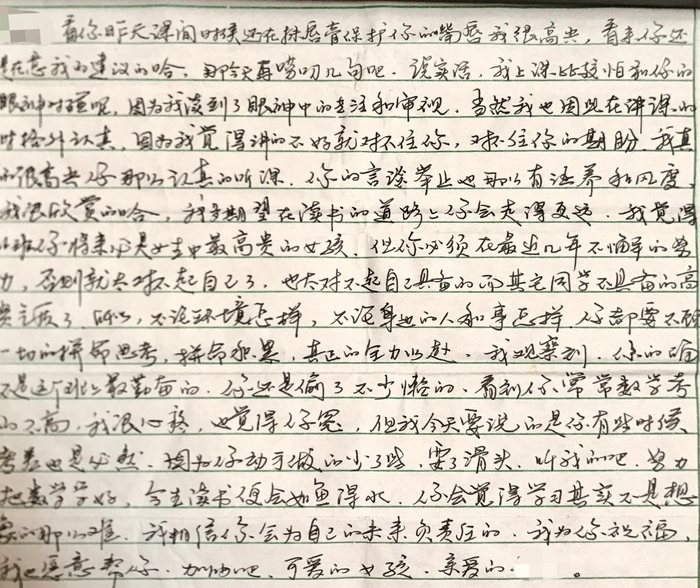 看你昨天课间时候还在抹唇膏保护你的嘴唇我很高兴，看来你还
是在意我的建议的哈，那今天再唠叨几句吧。说实话，我上课比较怕和你的
眼神对碰呢，因为我读到了眼神中的专注和审视。当然我也因此在讲课的
时格外认真，因为我觉得讲的不好就对不住你，对不住你的期盼，我真
的很高兴你那么认真的听课。你的言谈举止也那么有涵养和风度
我很欣赏的哈，我多期望在读书的道路上你会走得更远。我觉得
班你将来必是女生中最高贵的女孩。但你必须在最近几年不懈的努
力，否则就太对不起自己了，也太对不起自己具备的而其它同学不具备的高
贵气质了。所以，不论环境怎样，不论身边的人和事怎样，你都要不顾
一切的拼命思考，拼命积累，真正的全力以赴。我观察到，你的确
不是这个班上最勤奋的。你还是偷了不少懒的。看到你常常数学考
的不高，我很心疼，也觉得你冤，但我今天要说的是你有些时候
考差也是必然，因为你动手做的少了些，耍了滑头。听我的吧，努力
把数学学好，今生读书便会如鱼得水。你会觉得学习其实不是想
象的那么难。我相信你会为自己的未来负责任的。我为你祝福，
我也愿意帮你。加油吧，可爱的女孩。亲爱的 。